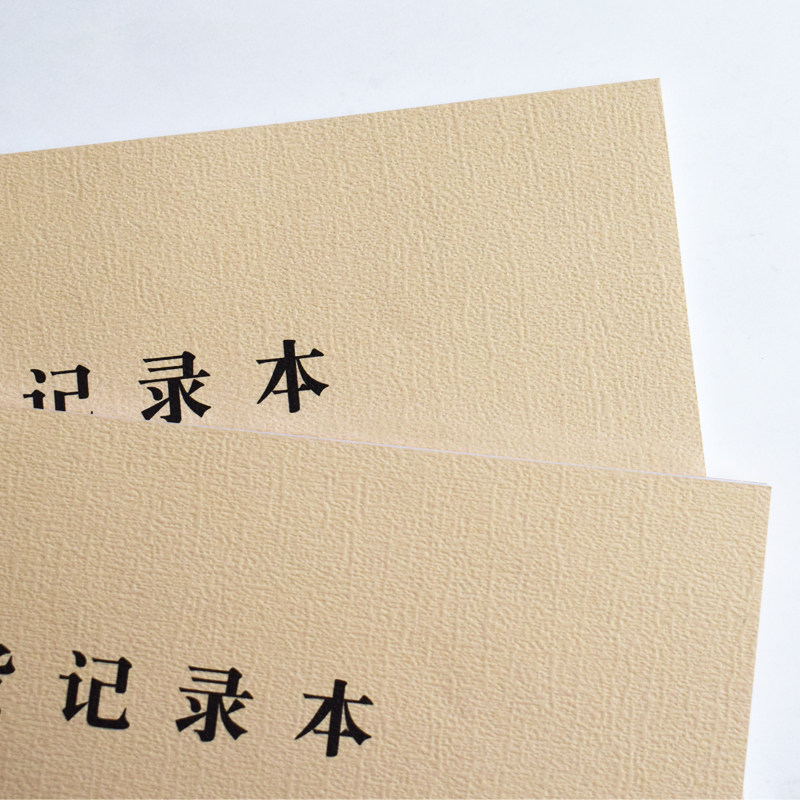 记录本
记录本